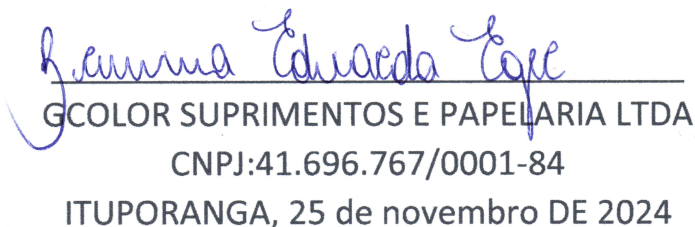 Eduarda
GCOLOR SUPRIMENTOS E PAPELARIA LTDA
CNPJ:41.696.767/0001-84
ITUPORANGA, 25 de novembro DE 2024